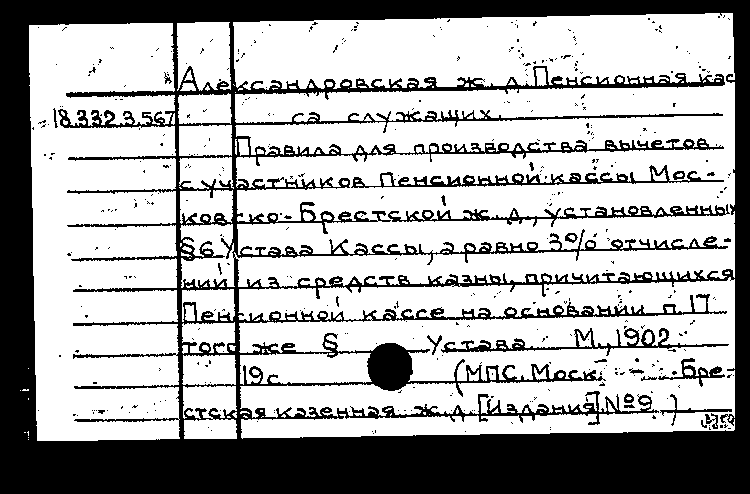 Александровская ж. д. Пенсионная кас
18.332.3.567
са служащих.
Правила для производства вычетов
с участников Пенсионной кассы Мос-
ковско-Брестской ж. д., установленных
§ 6 Устава Кассы, а равно 3% отчисле-
ний из средств казны, причитающихся
Пенсионной кассе на основании п. 17
того же § Устава М., 1902.
19с. (МПС. Моск. - Бре-
стская казенная ж. д. [Издания] № 9.)